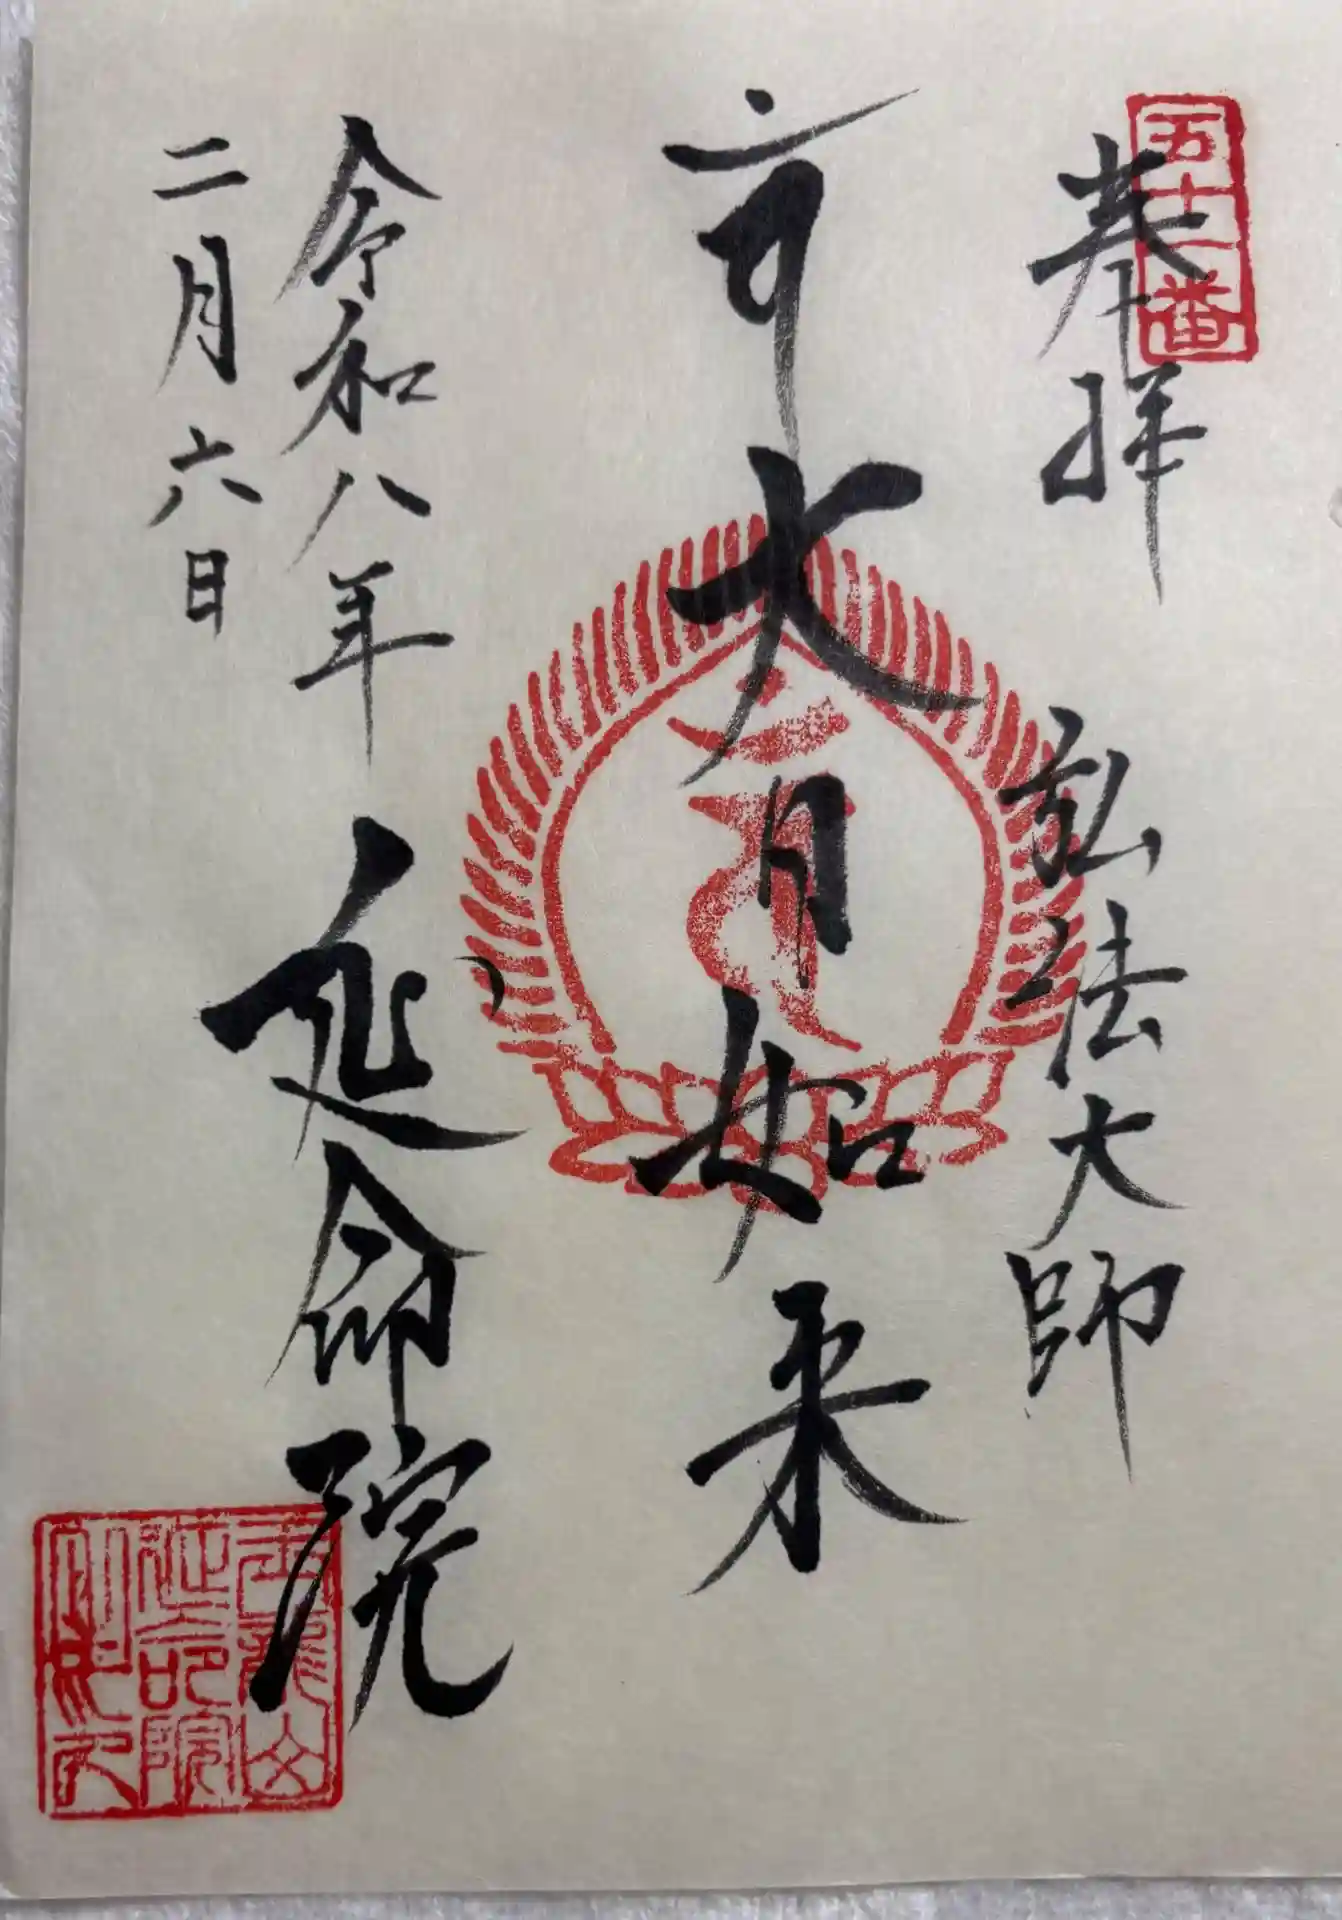 五十一番
奉拝
弘法大師
大日如来
令和八年
二月六日
延命院
玉龍山
延命院